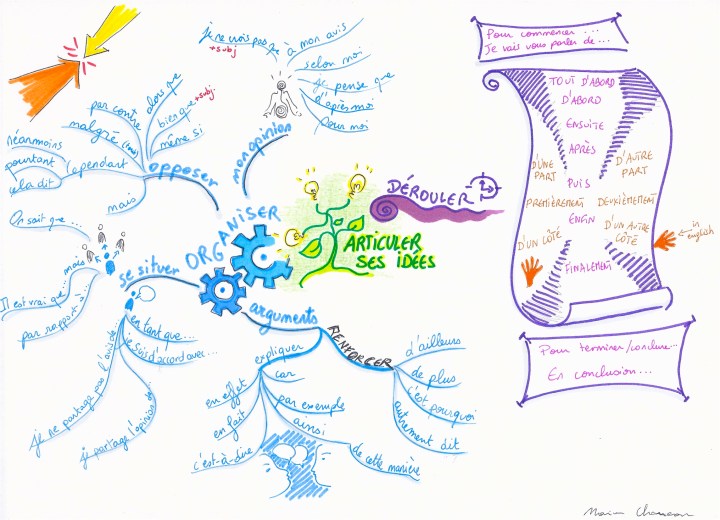 ARTICULER
SES IDÉES
ORGANISER
mon opinion
je ne crois pas que
+subj
à mon avis
selon moi
je pense que
d'après moi
pour moi
opposer
alors que
par contre
bien que +subj
malgré (les)
même si
néanmoins
pourtant
cependant
cela dit
mais
se situer
On sait que...
mais
Il est vrai que...
par rapport à
en tant que...
je suis d'accord avec...
je ne partage pas l'avis de...
je partage l'opinion de...
arguments
expliquer
car
en effet
par exemple
en fait
ainsi
c'est-à-dire
de cette manière
RENFORCER
d'ailleurs
de plus
c'est pourquoi
autrement dit
DÉROULER
Pour commencer...
Je vais vous parler de...
TOUT D'ABORD
D'ABORD
ENSUITE
APRÈS
D'UNE
PART
D'AUTRE
PART
PUIS
PREMIÈREMENT DEUXIÈMEMENT
ENFIN
D'UN CÔTÉ
D'UN AUTRE
CÔTÉ
in
english
FINALEMENT
Pour terminer/conclure...
En conclusion...